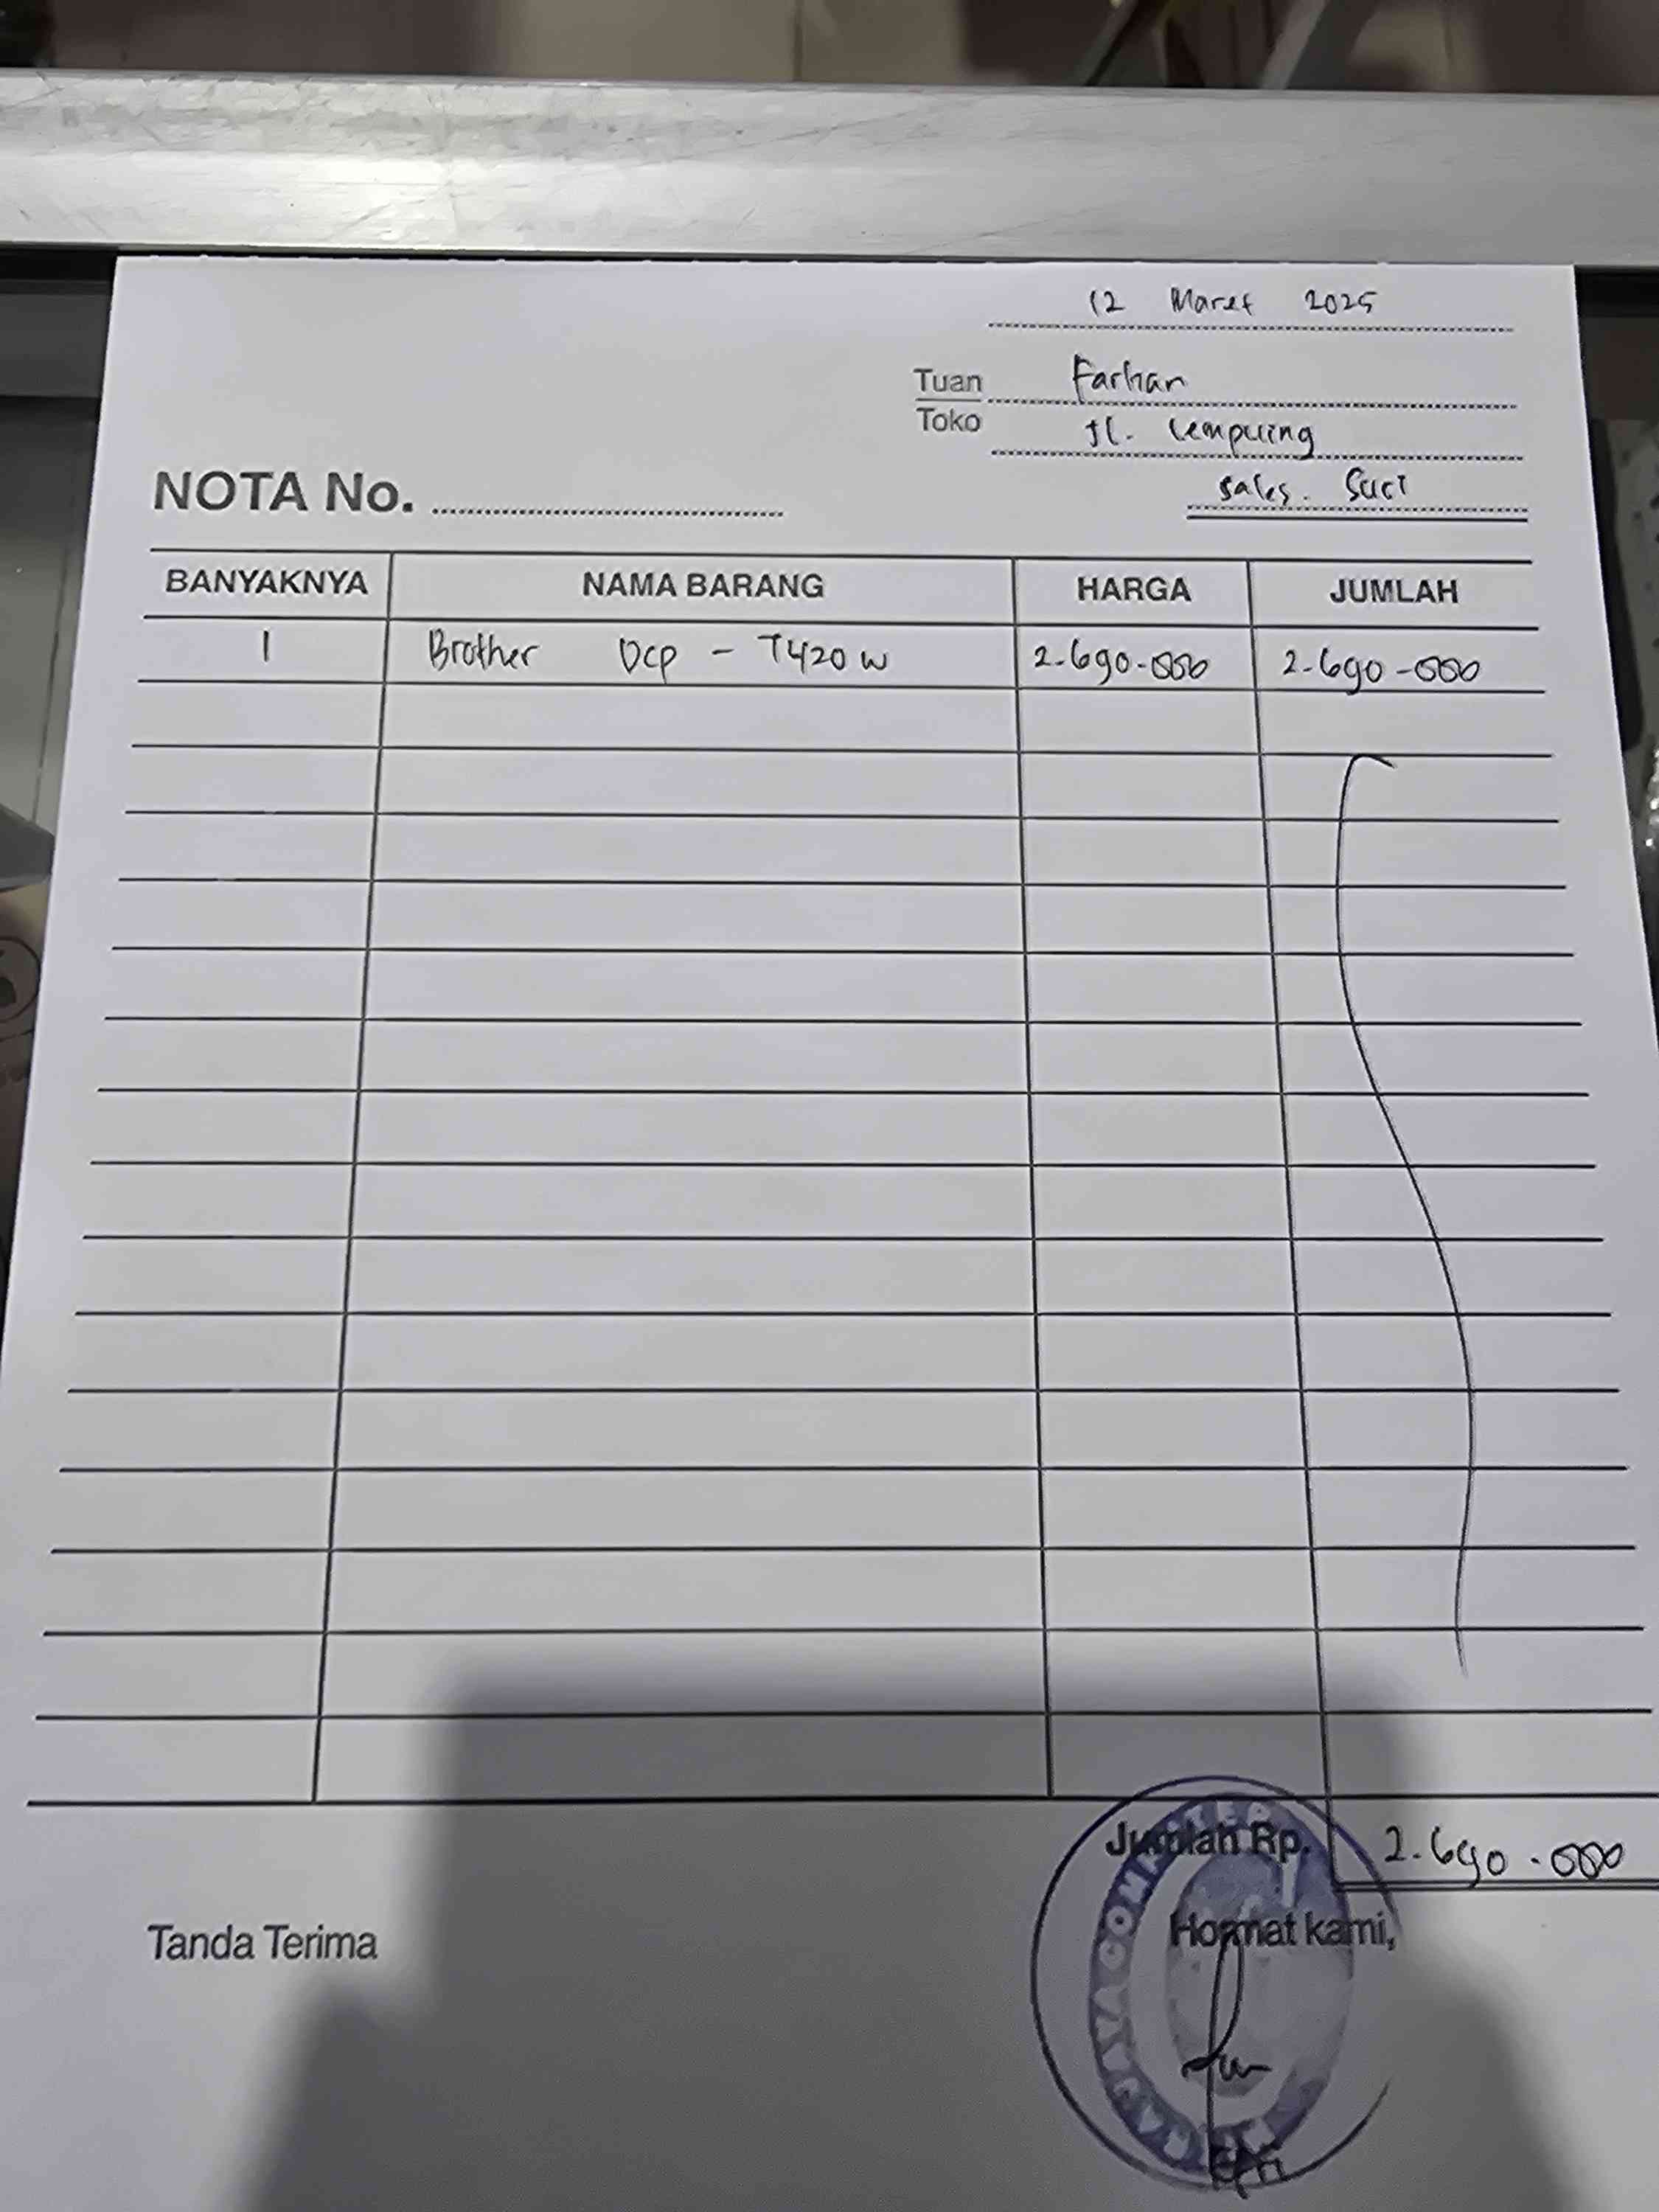 12 Maret 2025
Tuan Farhan
Toko Jl. Lempuing
NOTA No. sales. Suci
BANYAKNYA NAMA BARANG HARGA JUMLAH
1 Brother DCP - T420 W 2.690.000 2.690.000
Jumlah Rp. 2.690.000
Tanda Terima Hormat kami,